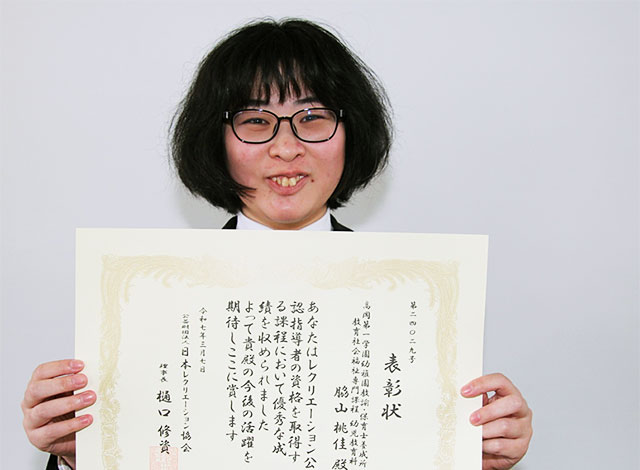 第二四〇二九号
表彰状
高岡第一学園幼稚園教諭・保育士養成所
教育社会福祉専門課程 幼児教育科
脇山 桃佳 殿
あなたはレクリエーション公
認指導者の資格を取得す
る課程において優秀な成
績を収められました
よって貴殿の今後の活躍を
期待しここに賞します
令和七年三月七日
公益財団法人 日本レクリエーション協会
理事長 樋口 修資